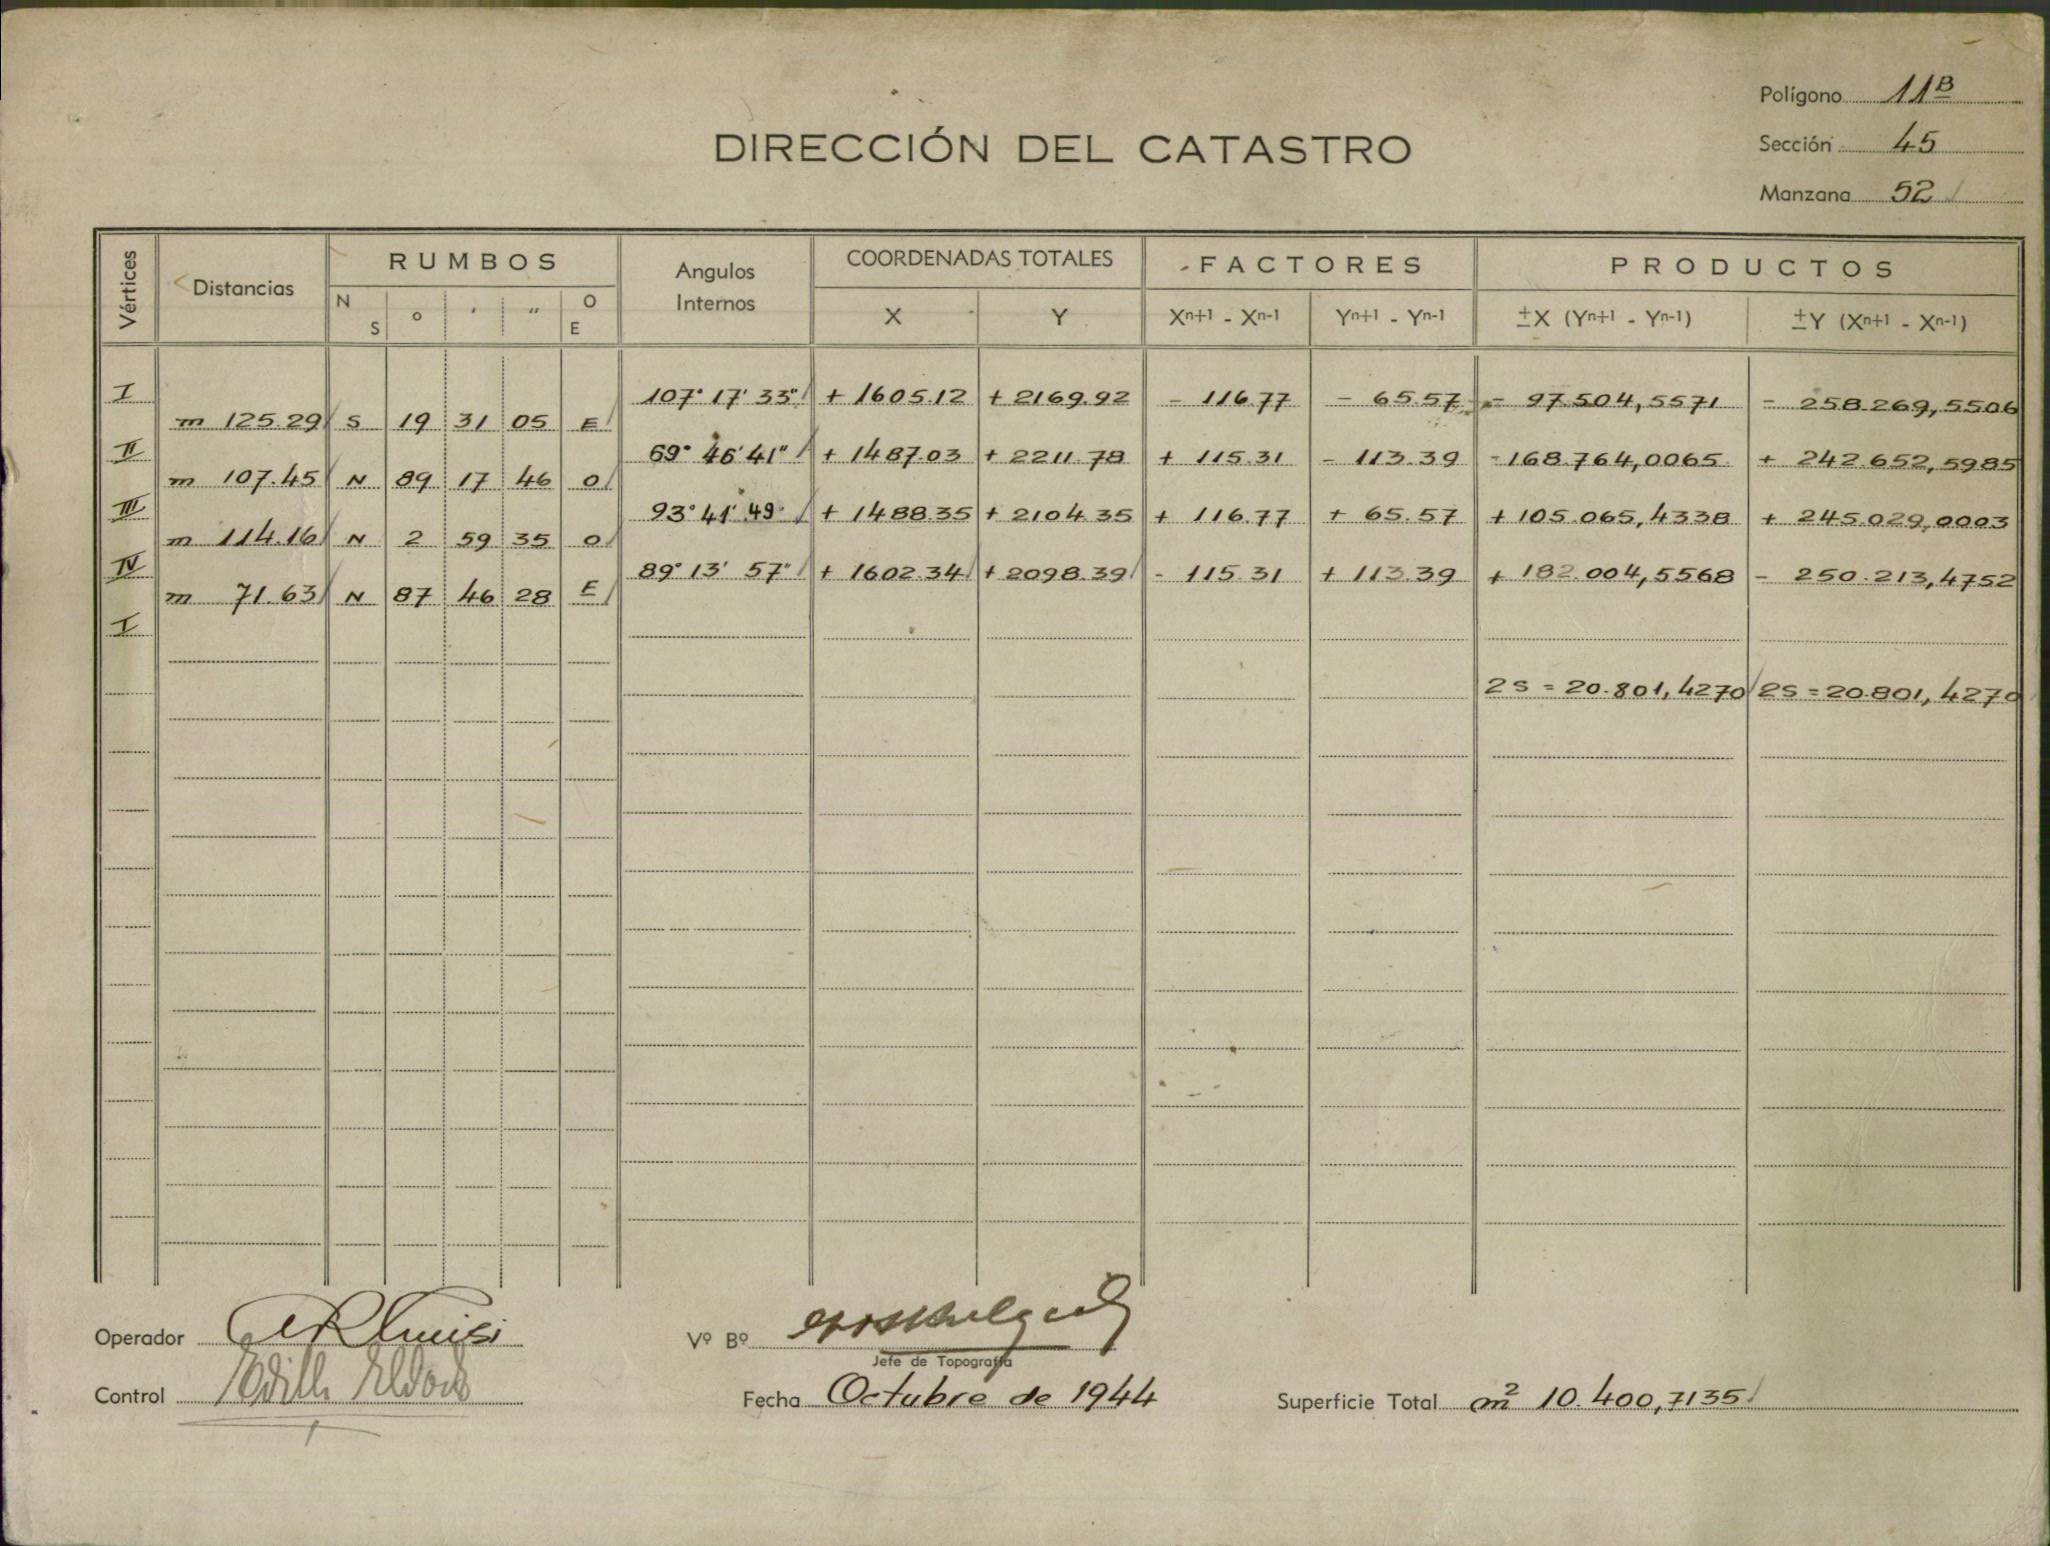 Polígono 11B
Sección 45
Manzana 52
DIRECCIÓN DEL CATASTRO
Vértices Distancias RUMBOS Angulos Internos COORDENADAS TOTALES FACTORES PRODUCTOS
N S ° ' " O E X Y Xn+1 - Xn-1 Yn+1 - Yn-1 ±X (Yn+1 - Yn-1) ±Y (Xn+1 - Xn-1)
I 107° 17' 33" + 1605.12 + 2169.92 - 116.77 - 65.57 - 97.504,5571 - 258.269,5506
m 125.29 S 19 31 05 E
II 69° 46' 41" + 1487.03 + 2211.78 + 115.31 - 113.39 - 168.764,0065 + 242.652,5985
m 107.45 N 89 17 46 O
III 93° 41' 49" + 1488.35 + 2104.35 + 116.77 + 65.57 + 105.065,4338 + 245.029,0003
m 114.16 N 2 59 35 O
IV 89° 13' 57" + 1602.34 + 2098.39 - 115.31 + 113.39 + 182.004,5568 - 250.213,4752
m 71.63 N 87 46 28 E
I
2S = 20.801,4270 2S = 20.801,4270
Operador
Vº Bº
Jefe de Topografía
Control
Fecha Octubre de 1944
Superficie Total m² 10.400,7135